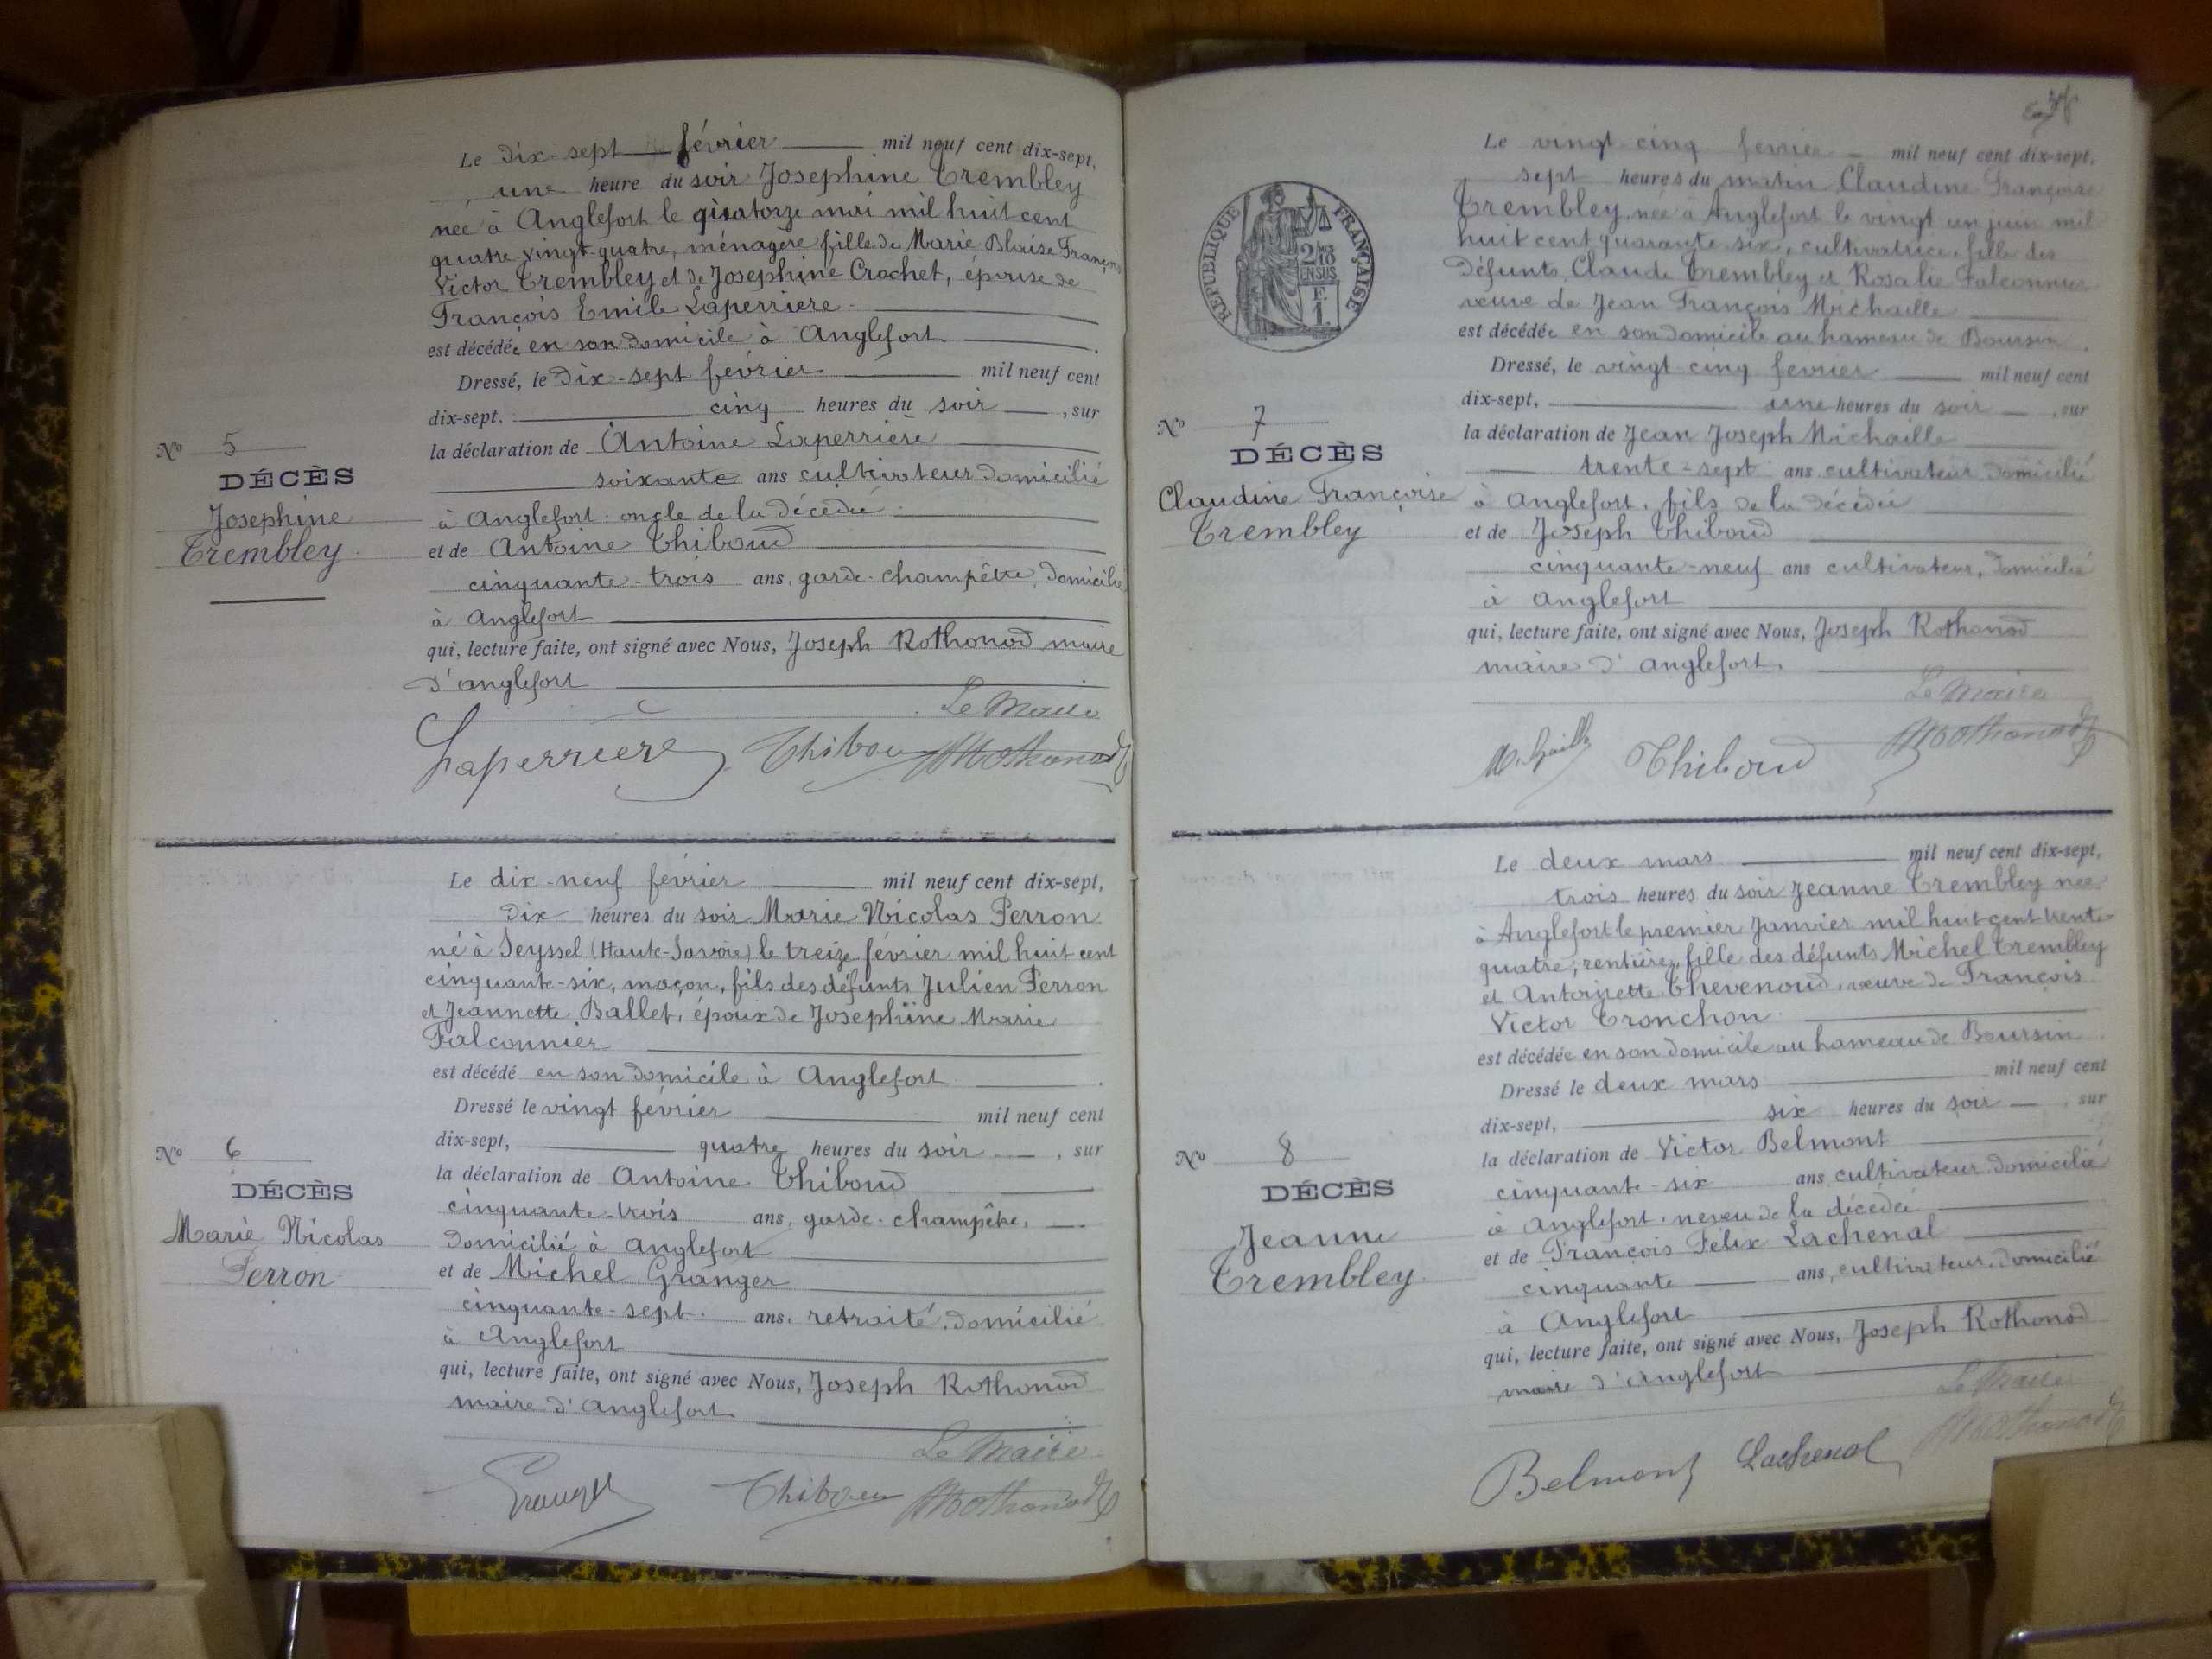 Le dix-sept février mil neuf cent dix-sept,
une heure du soir Josephine Trembley
née à Anglefort le quatorze mai mil huit cent
quatre vingt-quatre, ménagère fille de Marie Blaise François
Victor Trembley et de Josephine Crochet, épouse de
François Emile Laperriere
est décédée en son domicile à Anglefort.
Dressé, le dix-sept février mil neuf cent
dix-sept, cinq heures du soir, sur
la déclaration de Antoine Laperrière
soixante ans cultivateur domicilié
à Anglefort oncle de la décédée
et de Antoine Thiboud
cinquante-trois ans, garde-champêtre, domicilié
à Anglefort
qui, lecture faite, ont signé avec Nous, Joseph Rothonod maire
d'anglefort
Le Maire
Laperriere Thiboud Rothonod
No 5
DÉCÈS
Josephine
Trembley
Le dix-neuf février mil neuf cent dix-sept,
dix heures du soir Marie Nicolas Perron
né à Seyssel (Haute-Savoie) le treize février mil huit cent
cinquante-six, maçon, fils des défunts Julien Perron
et Jeannette Ballet, époux de Josephine Marie
Falconnier
est décédé en son domicile à Anglefort.
Dressé le vingt février mil neuf cent
dix-sept, quatre heures du soir, sur
la déclaration de Antoine Thiboud
cinquante-trois ans, garde-champêtre,
domicilié à Anglefort
et de Michel Granger
cinquante-sept ans, retraité, domicilié
à Anglefort
qui, lecture faite, ont signé avec Nous, Joseph Rothonod
maire d'anglefort
Le Maire
Granger Thiboud Rothonod
No 6
DÉCÈS
Marie Nicolas
Perron
RÉPUBLIQUE FRANÇAISE
2/10
EN SUS
Le vingt-cinq fevrier mil neuf cent dix-sept,
sept heures du matin Claudine Françoise
Trembley, née à Anglefort le vingt un juin mil
huit cent quarante-six, cultivatrice, fille des
défunts Claude Trembley et Rosalie Falconnier
veuve de Jean François Michaille
est décédée en son domicile au hameau de Boursin.
Dressé, le vingt-cinq fevrier mil neuf cent
dix-sept, une heures du soir, sur
la déclaration de Jean Joseph Michaille
trente-sept ans cultivateur, domicilié
à Anglefort, fils de la décédée
et de Joseph Thiboud
cinquante-neuf ans cultivateur, domicilié
à Anglefort
qui, lecture faite, ont signé avec Nous, Joseph Rothonod
maire d'anglefort.
Le Maire
Thiboud Rothonod
No 7
DÉCÈS
Claudine Françoise
Trembley
Le deux mars mil neuf cent dix-sept,
trois heures du soir Jeanne Trembley née
à Anglefort le premier Janvier mil huit cent trente-
quatre, rentière, fille des défunts Michel Trembley
et Antoinette Thevenoud, veuve de François
Victor Tronchon
est décédée en son domicile au hameau de Boursin.
Dressé le deux mars mil neuf cent
dix-sept, six heures du soir, sur
la déclaration de Victor Belmont
cinquante-six ans cultivateur, domicilié
à Anglefort, neveu de la décédée
et de François Félix Lachenal
cinquante ans, cultivateur, domicilié
à Anglefort
qui, lecture faite, ont signé avec Nous, Joseph Rothonod
maire d'anglefort
Le Maire
Belmont Lachenal Rothonod
No 8
DÉCÈS
Jeanne
Trembley